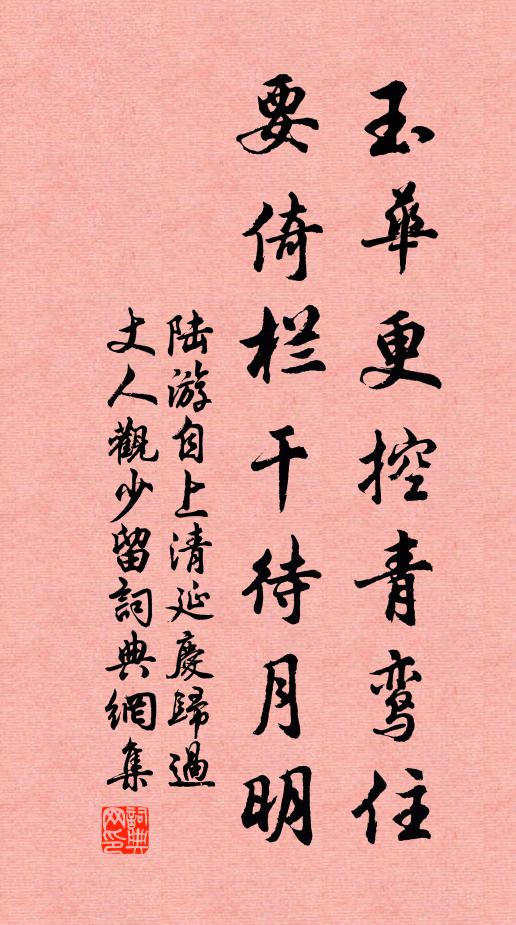 玉華更控青鸾住
要倚栏干待月明
陆游自上清延慶歸過
丈人觀少留詞典網集
詞典
网印